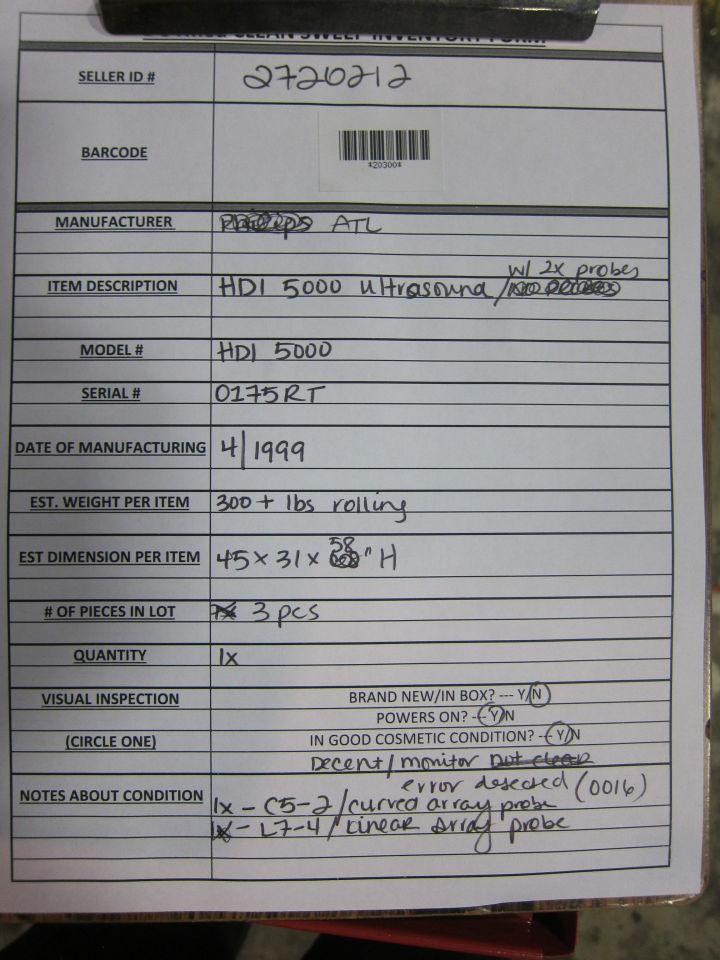 CLEAN SWEEP INVENTORY FORM
SELLER ID # 2720212
BARCODE
*20300*
MANUFACTURER ATL
w/ 2x probes
ITEM DESCRIPTION HDI 5000 ultrasound/
MODEL # HDI 5000
SERIAL # 0175RT
DATE OF MANUFACTURING 4/1999
EST. WEIGHT PER ITEM 300+ lbs rolling
58
EST DIMENSION PER ITEM 45 x 31 x " H
# OF PIECES IN LOT 3 pcs
QUANTITY 1x
VISUAL INSPECTION BRAND NEW/IN BOX? --- Y/N
POWERS ON? --- Y/N
(CIRCLE ONE) IN GOOD COSMETIC CONDITION? --- Y/N
Decent/monitor not clear
error desected (0016)
NOTES ABOUT CONDITION 1x - C5-2/curved array probe
1x - L7-4/Linear Array probe